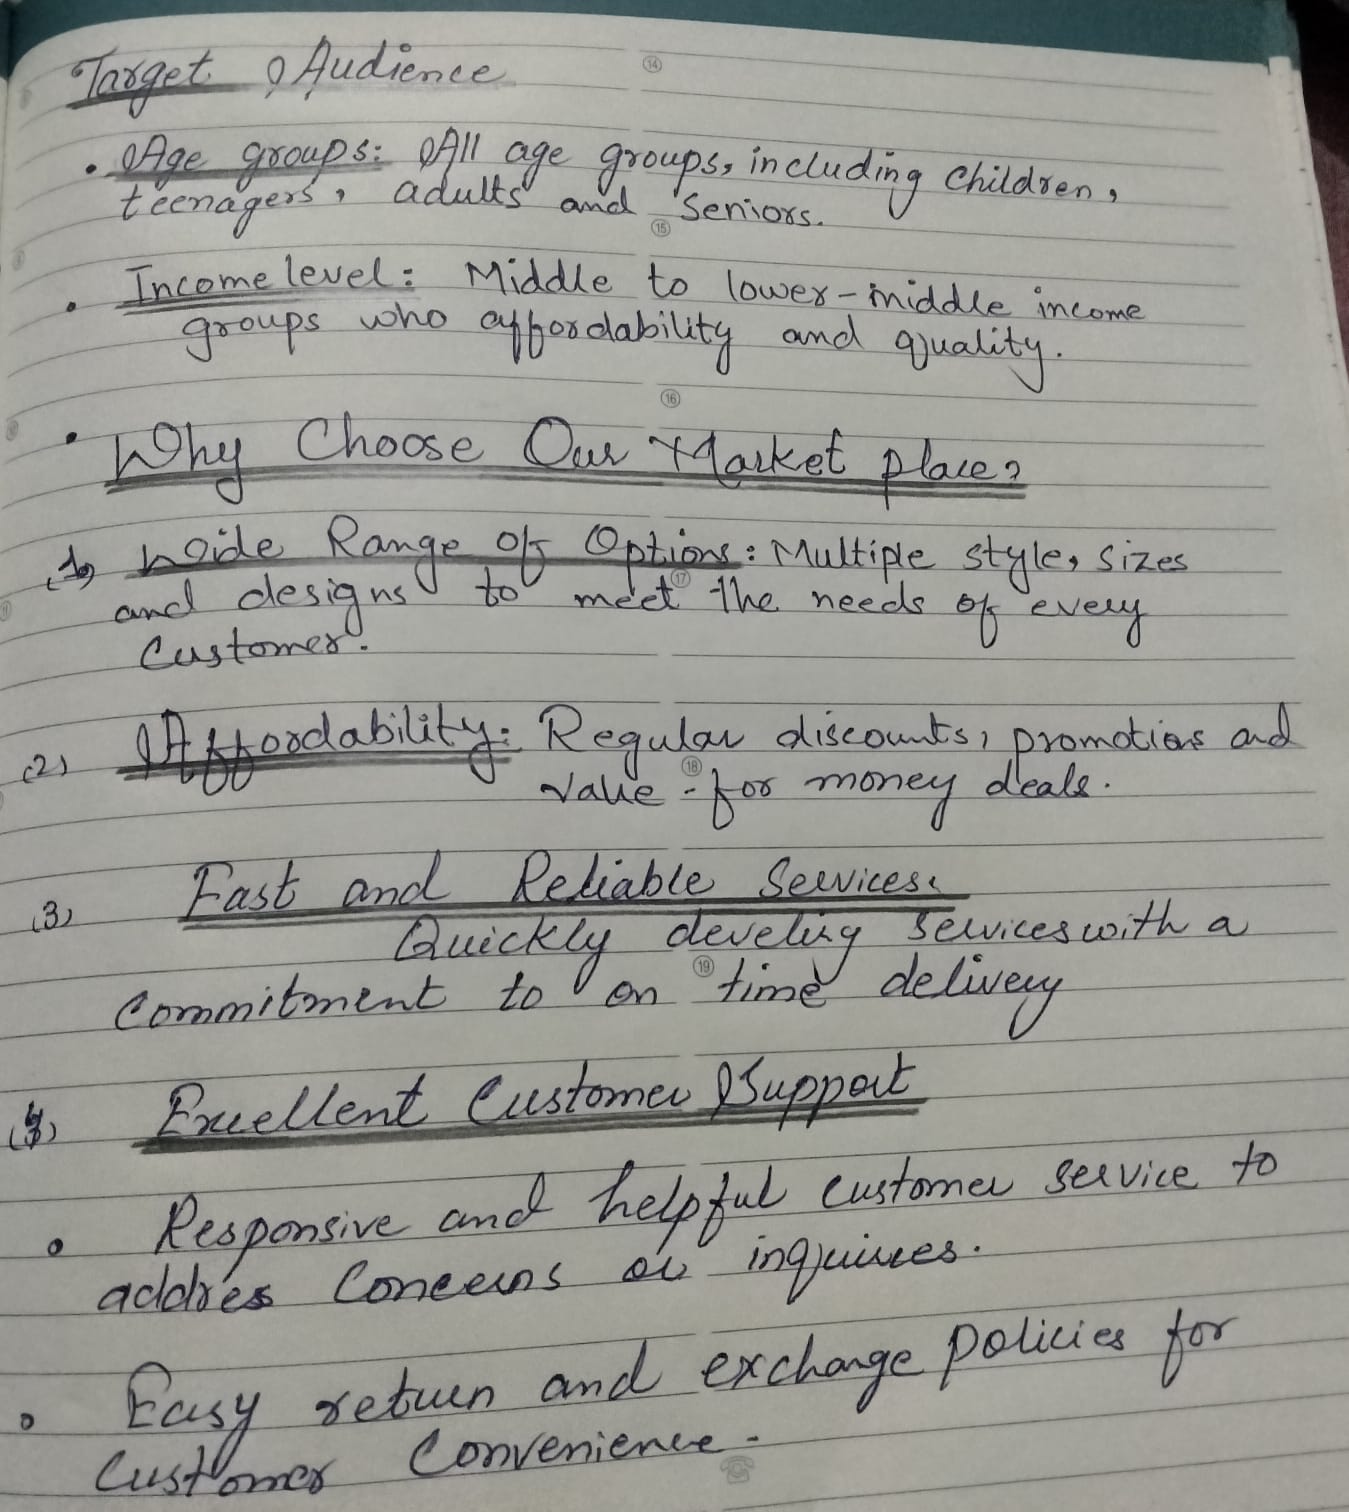 Target Audience
14
• Age groups: All age groups, including Children,
teenagers, adults and Seniors.
15
• Income level: Middle to lower-middle income
groups who affordability and quality.
16
• Why Choose Our Market place?
(1) Wide Range of Options: Multiple style, sizes
17
and designs to meet the needs of every
Customer.
(2) Affordability: Regular discounts, promotions and
18
Value-for money deals.
(3) Fast and Reliable Services.
Quickly services with a
19
Commitment to on time delivery
(4) Excellent Customer Support
• Responsive and helpful customer service to
address Concerns or inquiries.
• Easy return and exchange policies for
Customer Convenience.